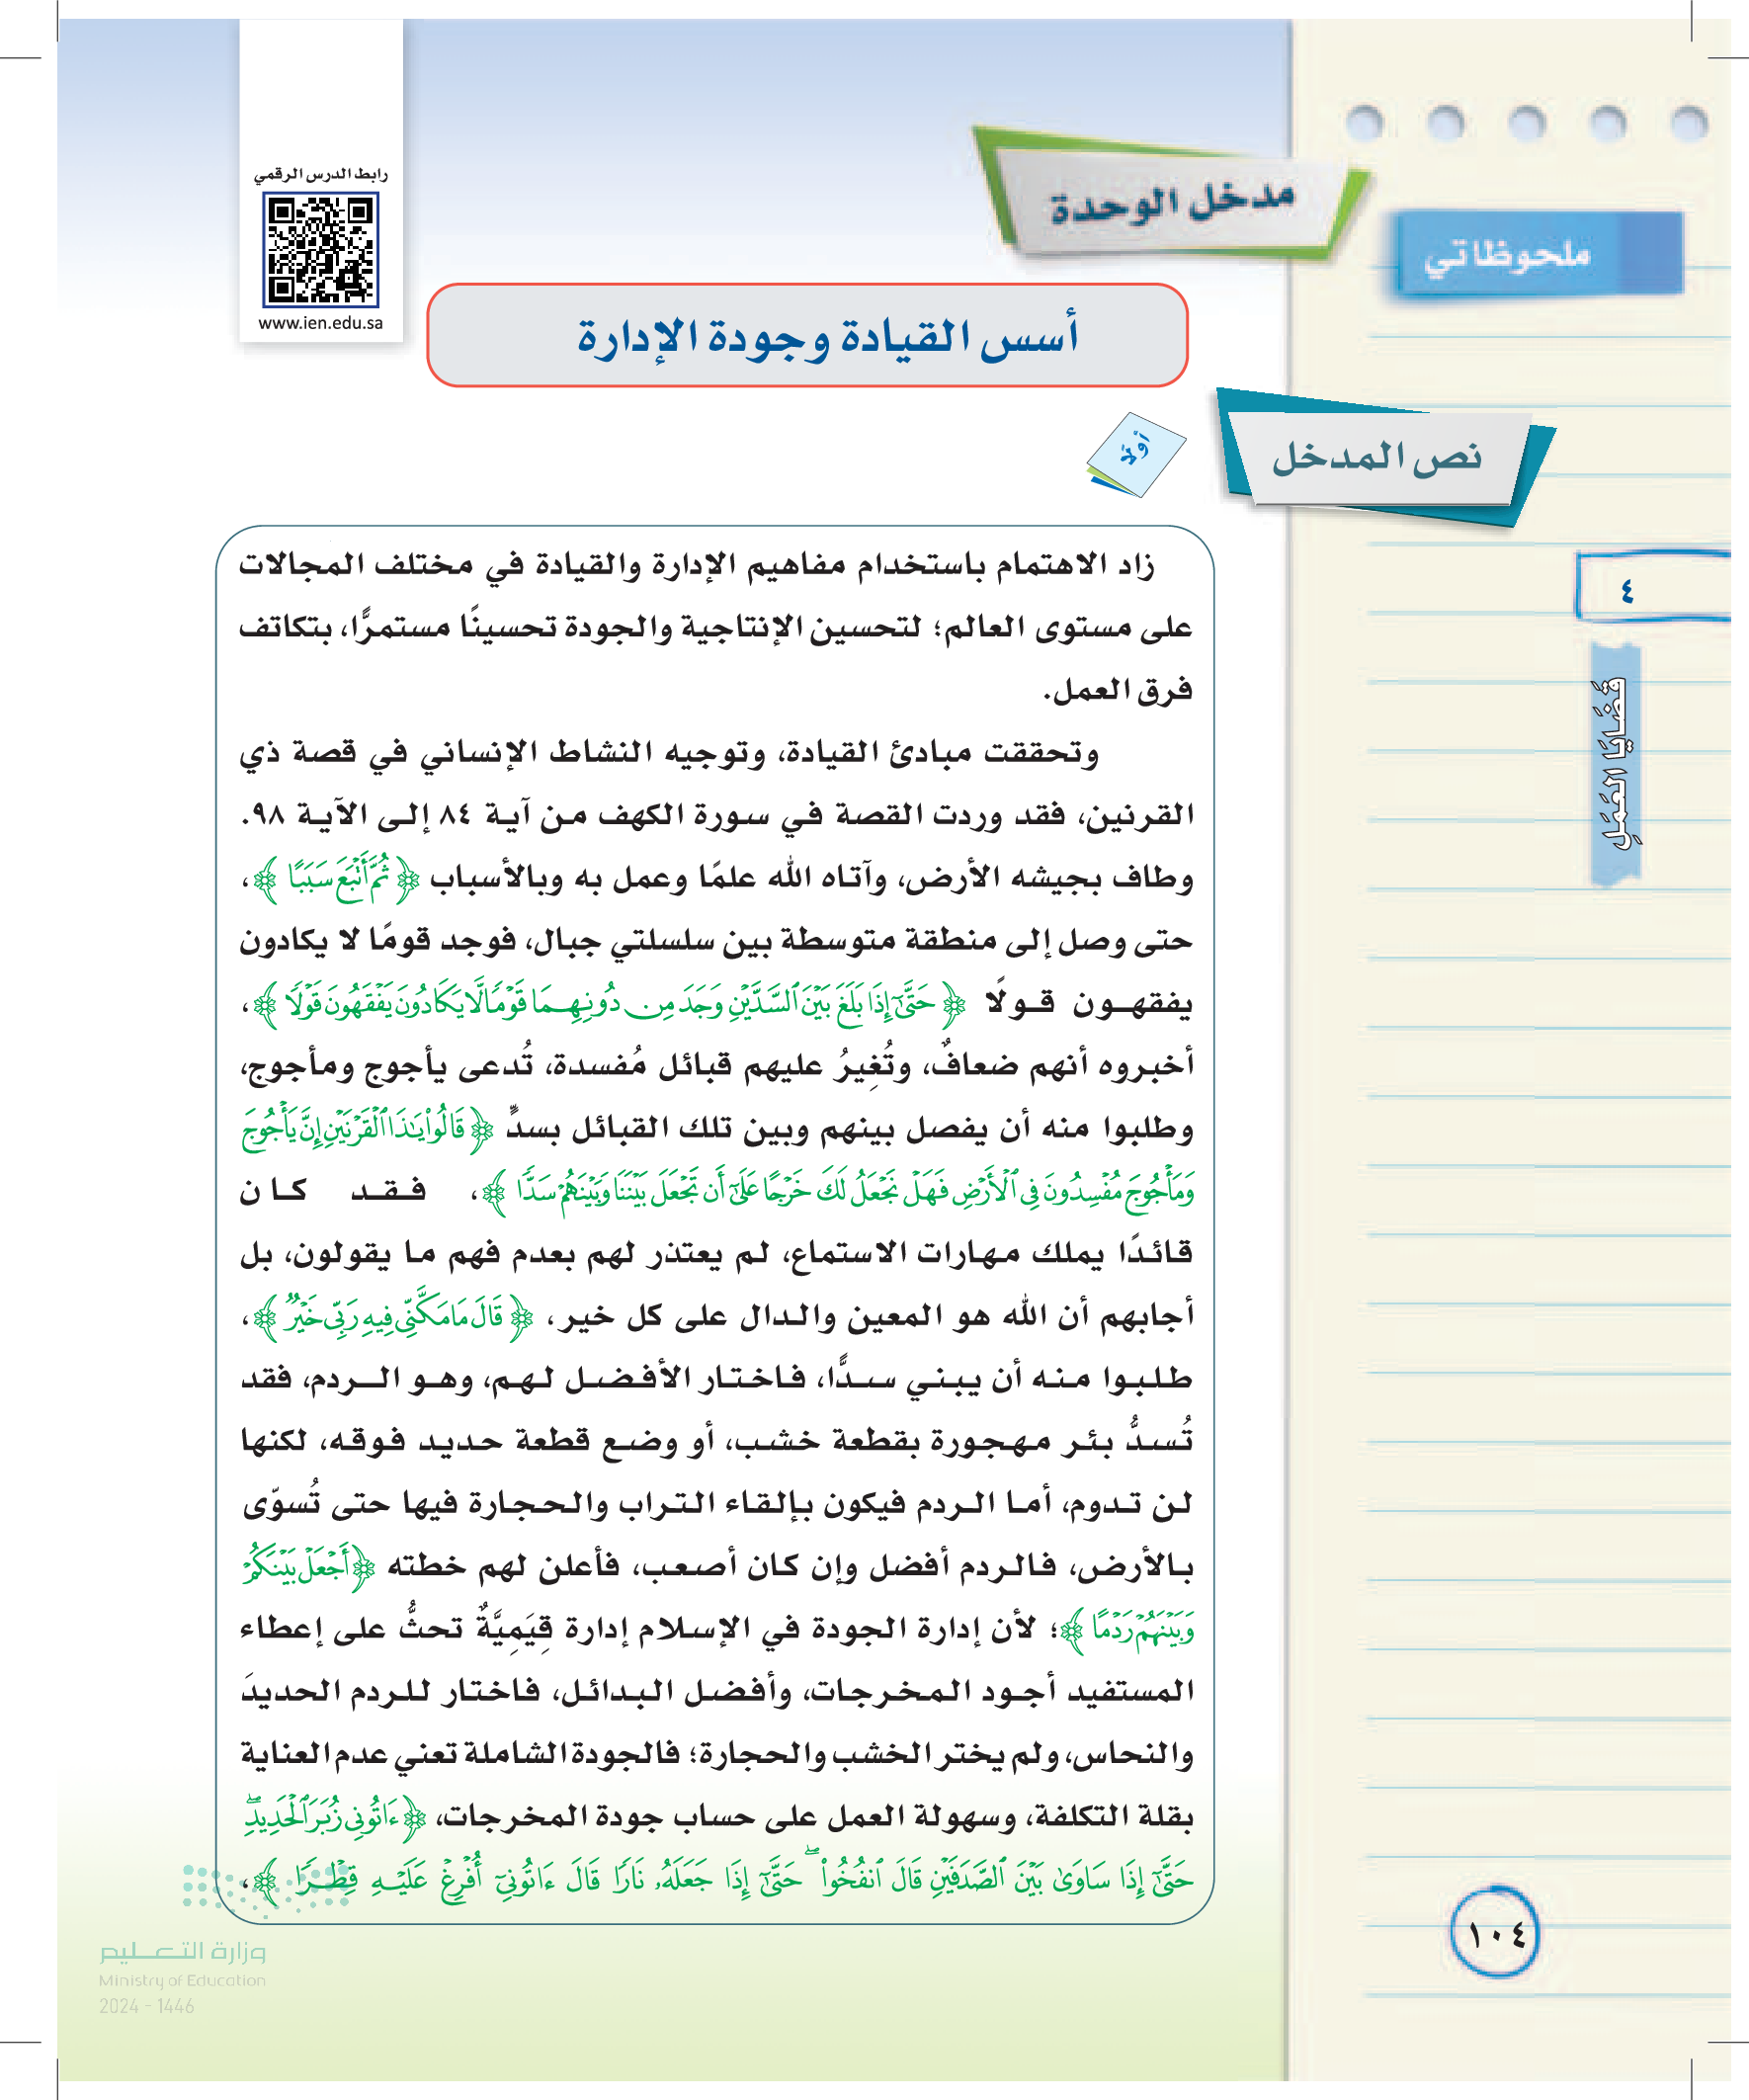 رابط الدرس الرقمي
www.ien.edu.sa
مدخل الوحدة
ملحوظاتي
أسس القيادة وجودة الإدارة
نص المدخل
أولًا
٤
قَضَايَا العَمَلِ
زاد الاهتمام باستخدام مفاهيم الإدارة والقيادة في مختلف المجالات
على مستوى العالم؛ لتحسين الإنتاجية والجودة تحسينًا مستمرًّا، بتكاتف
فرق العمل.
وتحققت مبادئ القيادة، وتوجيه النشاط الإنساني في قصة ذي
القرنين، فقد وردت القصة في سورة الكهف من آية ٨٤ إلى الآية ٩٨.
وطاف بجيشه الأرض، وآتاه الله علمًا وعمل به وبالأسباب ﴿ ثُمَّ أَتْبَعَ سَبَبًا ﴾،
حتى وصل إلى منطقة متوسطة بين سلسلتي جبال، فوجد قومًا لا يكادون
يفقهون قولًا ﴿ حَتَّىٰٓ إِذَا بَلَغَ بَيْنَ ٱلسَّدَّيْنِ وَجَدَ مِن دُونِهِمَا قَوْمًا لَّا يَكَادُونَ يَفْقَهُونَ قَوْلًا ﴾،
أخبروه أنهم ضعافٌ، وتُغِيرُ عليهم قبائل مُفسدة، تُدعى يأجوج ومأجوج،
وطلبوا منه أن يفصل بينهم وبين تلك القبائل بسدٍّ ﴿ قَالُوا۟ يَٰذَا ٱلْقَرْنَيْنِ إِنَّ يَأْجُوجَ
وَمَأْجُوجَ مُفْسِدُونَ فِى ٱلْأَرْضِ فَهَلْ نَجْعَلُ لَكَ خَرْجًا عَلَىٰٓ أَن تَجْعَلَ بَيْنَنَا وَبَيْنَهُمْ سَدًّا ﴾، فقد كان
قائدًا يملك مهارات الاستماع، لم يعتذر لهم بعدم فهم ما يقولون، بل
أجابهم أن الله هو المعين والدال على كل خير، ﴿ قَالَ مَا مَكَّنِّى فِيهِ رَبِّى خَيْرٌ ﴾،
طلبوا منه أن يبني سدًّا، فاختار الأفضل لهم، وهو الردم، فقد
تُسدُّ بئر مهجورة بقطعة خشب، أو وضع قطعة حديد فوقه، لكنها
لن تدوم، أما الردم فيكون بإلقاء التراب والحجارة فيها حتى تُسوّى
بالأرض، فالردم أفضل وإن كان أصعب، فأعلن لهم خطته ﴿أَجْعَلْ بَيْنَكُمْ
وَبَيْنَهُمْ رَدْمًا ﴾؛ لأن إدارة الجودة في الإسلام إدارة قِيَمِيَّةٌ تحثُّ على إعطاء
المستفيد أجود المخرجات، وأفضل البدائل، فاختار للردم الحديدَ
والنحاس، ولم يختر الخشب والحجارة؛ فالجودة الشاملة تعني عدم العناية
بقلة التكلفة، وسهولة العمل على حساب جودة المخرجات، ﴿ ءَاتُونِى زُبَرَ ٱلْحَدِيدِ ۖ
حَتَّىٰٓ إِذَا سَاوَىٰ بَيْنَ ٱلصَّدَفَيْنِ قَالَ ٱنفُخُوا۟ ۖ حَتَّىٰٓ إِذَا جَعَلَهُۥ نَارًا قَالَ ءَاتُونِىٓ أُفْرِغْ عَلَيْهِ قِطْرًا ﴾،
وزارة التعليم
Ministry of Education
2024 - 1446
١٠٤